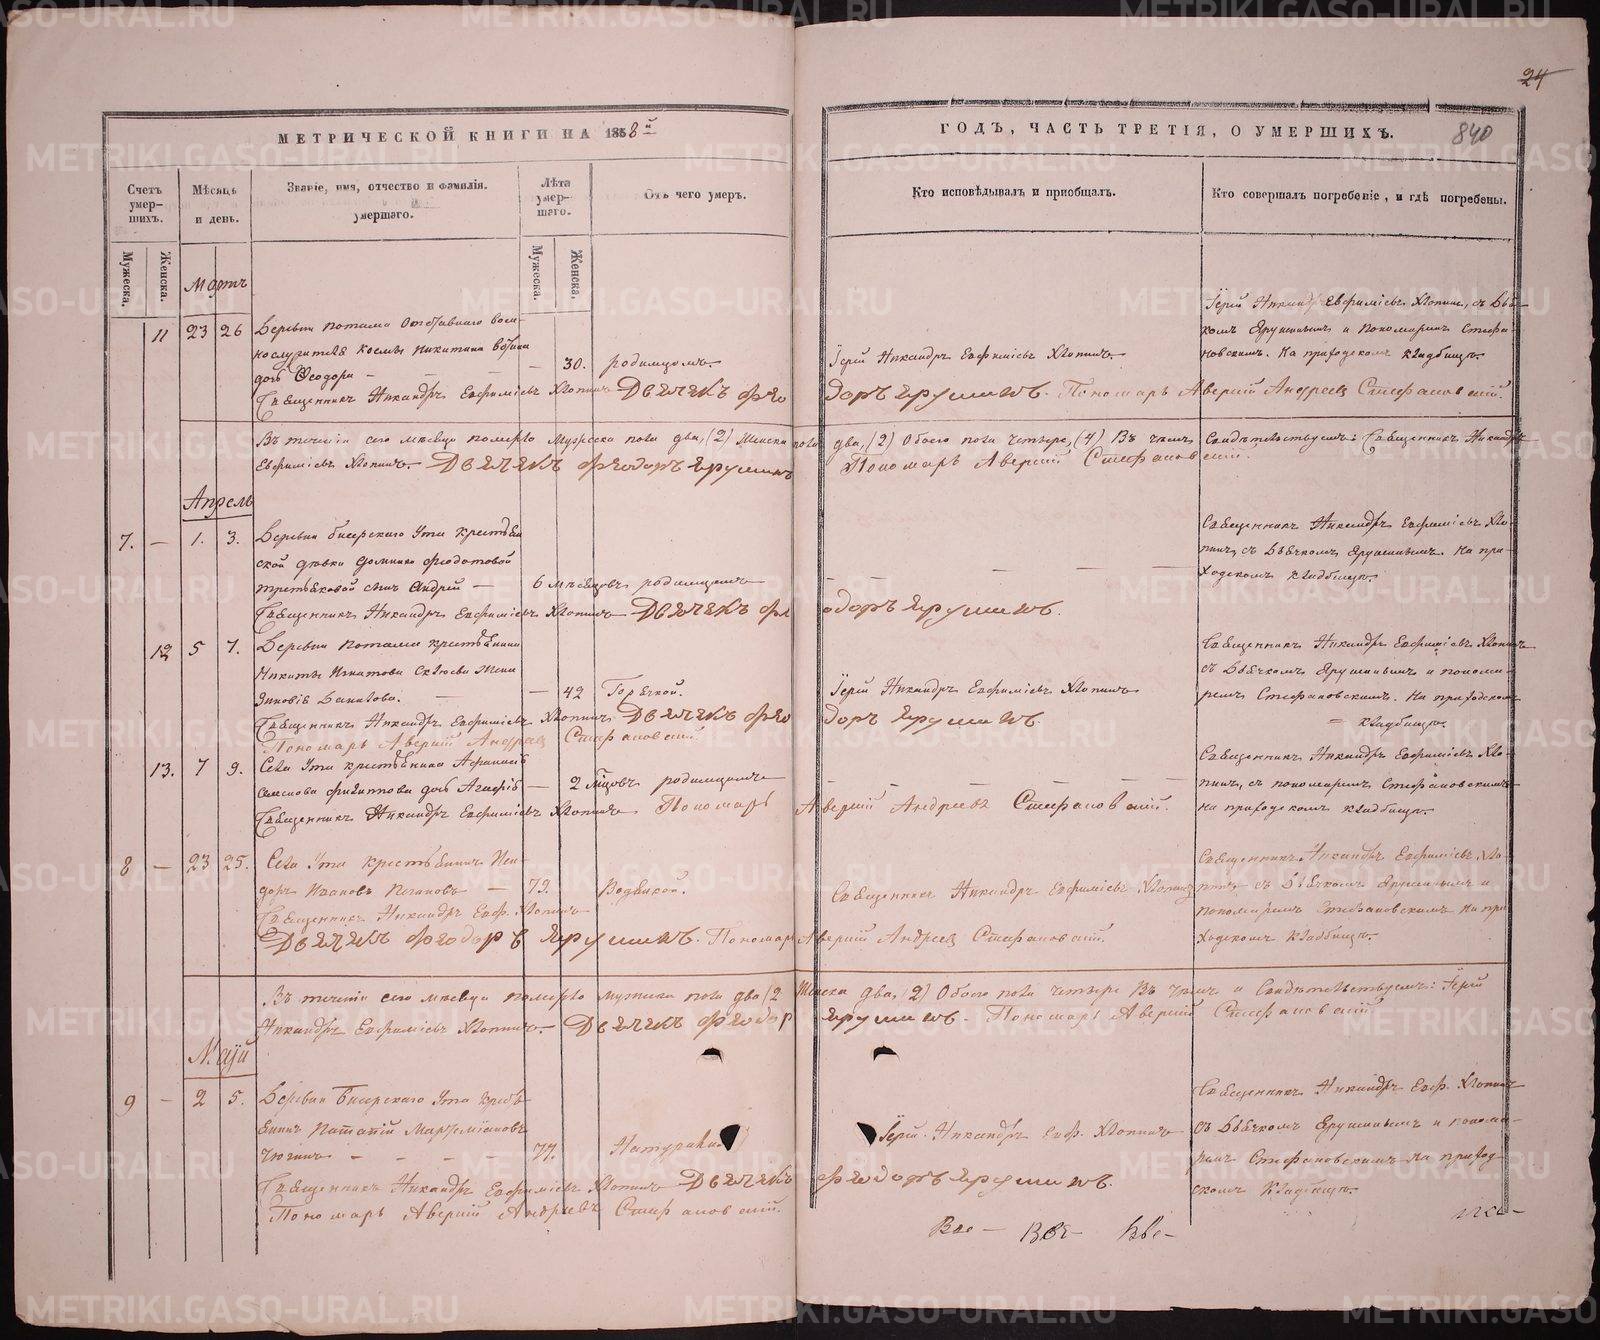 24
МЕТРИЧЕСКОЙ КНИГИ НА 1858й
ГОДЪ, ЧАСТЬ ТРЕТІЯ, О УМЕРШИХЪ.
840
Счетъ умершихъ.
Мѣсяць и день.
Званіе, имя, отчество и фамилія умершаго.
Лѣта умершаго.
Отъ чего умеръ.
Кто исповѣдывалъ и пріобщалъ.
Кто совершалъ погребеніе, и гдѣ погребены.
Мужеска.
Женска.
Мужеска.
Женска.
Мартъ
11 23 26 Деревни Потама отставнаго
Никитина
дочь Ѳеодора — 30. родимцомъ.
Священникъ Никандръ Евфиміевъ Хлопинъ Дьячекъ Ѳео
Іерей Никандръ Евфиміевъ Хлопинъ.
доръ Ярушинъ. Пономарь Аверкій Андреевъ Стефановскій.
Іерей Никандръ Евфиміевъ Хлопинъ, съ Дья-
комъ Ярушинымъ и Пономаремъ Стефа-
новскимъ. На приходскомъ кладбищѣ.
Въ теченіи сего мѣсяца померло Мужеска пола два, (2) Женска пола два, (2) Обоего пола четыре, (4) Въ чемъ Свидѣтельствуемъ: Священникъ Никандръ
Евфиміевъ Хлопинъ. Дьячекъ Ѳеодоръ Ярушинъ Пономарь Аверкій Стефановскій.
Апрель
7. — 1. 3. Деревни Бисерскаго Ута крестьян
ской дѣвки Ѳедотовой
Третьяковой сынъ Андрей — 6 мѣсяцовъ родимцемъ
Священникъ Никандръ Евфиміевъ Хлопинъ Дьячекъ Ѳе
одоръ Ярушинъ.
Священникъ Никандръ Евфиміевъ Хло-
пинъ, съ Дьячкомъ Ярушинымъ. На при-
ходскомъ кладбищѣ.
12 5 7. Деревни Потама крестьянина
Никиты Игнатова жена
Зиновія — 42 Горячкой.
Священникъ Никандръ Евфиміевъ Хлопинъ Дьячекъ Ѳео
Пономарь Аверкій Андреевъ Стефановскій.
Іерей Никандръ Евфиміевъ Хлопинъ
доръ Ярушинъ.
Священникъ Никандръ Евфиміевъ Хлопинъ
съ Дьячкомъ Ярушинымъ и понома-
ремъ Стефановскимъ. На приходскомъ
— кладбищѣ.
13. 7 9. Села Ута крестьянина
Филиппова дочь Агафія — 2 мѣсяцовъ родимцемъ
Священникъ Никандръ Евфиміевъ Хлопинъ Пономарь
Аверкій Андреевъ Стефановскій.
Священникъ Никандръ Евфиміевъ Хло-
пинъ, съ пономаремъ Стефановскимъ
на приходскомъ кладбищѣ.
8 — 23 25. Села Ута крестьянинъ Иси-
доръ Ивановъ — 79. Водянкой.
Священникъ Никандръ Евф. Хлопинъ
Дьячекъ Ѳеодоръ Ярушинъ. Пономарь Аверкій Андреевъ Стефановскій.
Священникъ Никандръ Евфиміевъ Хлопинъ
Священникъ Никандръ Евфиміевъ Хло-
пинъ, съ Дьячкомъ Ярушинымъ и
пономаремъ Стефановскимъ на при-
ходскомъ кладбищѣ.
Въ теченіи сего мѣсяца померло мужеска пола два (2 Женска два, (2) Обоего пола четыре Въ чемъ и Свидѣтельствуемъ: Іерей
Никандръ Евфиміевъ Хлопинъ. Дьячекъ Ѳеодоръ Ярушинъ. Пономарь Аверкій Стефановскій
Маія
9 — 2 5. Деревни Бисерскаго Ута кресть
янинъ
— 77. Натуральн
Священникъ Никандръ Евфиміевъ Хлопинъ Дьячекъ
Пономарь Аверкій Андреевъ Стефановскій.
Іерей Никандръ Евф. Хлопинъ
Ѳеодоръ Ярушинъ.
Священникъ Никандръ Евф. Хлопинъ
съ Дьячкомъ Ярушинымъ и понома-
ремъ Стефановскимъ на приход-
скомъ кладбищѣ.
METRIKI.GASO-URAL.RU